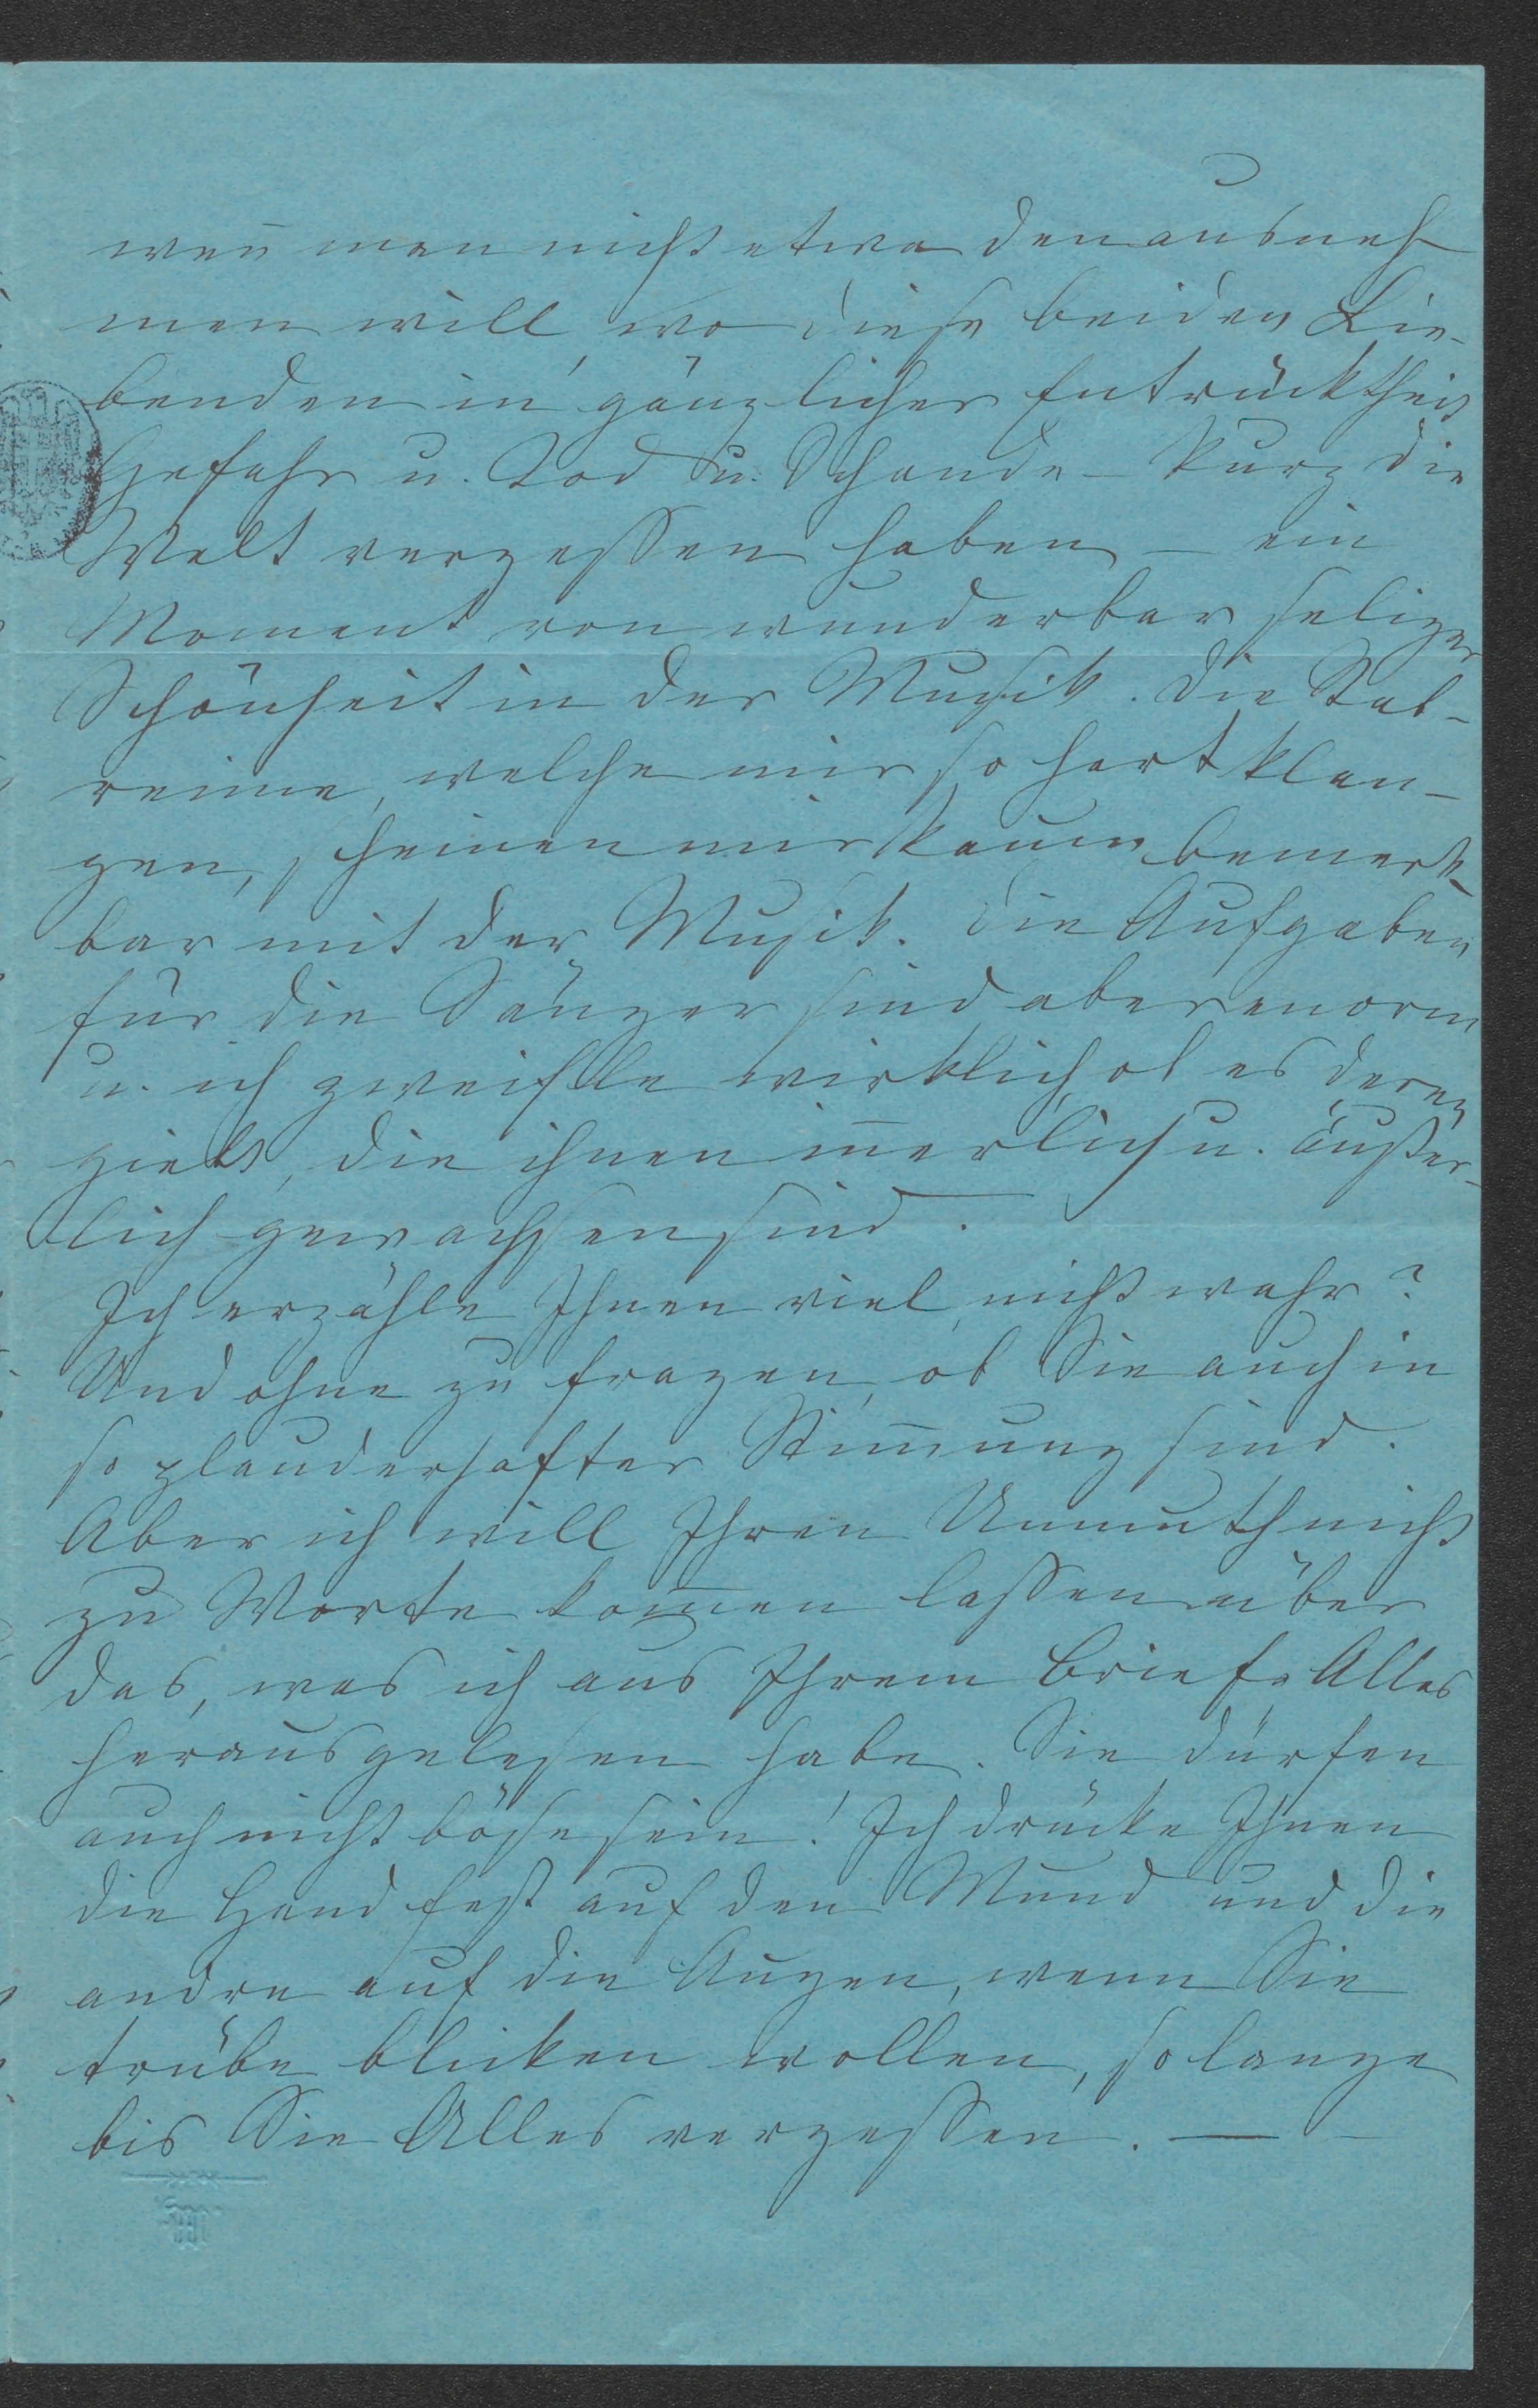 wen̄ man nicht etwa den ausneh
men will, wo diese beiden Lie-
benden in gänzlicher Entrücktheit
Gefahr u. Tod u. Schande – kurz die
Welt vergessen haben – ein
Moment von wunderbar seliger
Schönheit in der Musik. Die Stab-
reime, welche mir so hart klan-
gen, scheinen mir kaum bemerk-
bar mit der Musik. Die Aufgaben
für die Sänger sind aber enorm
u. ich zweifle wirklich, ob es deren
giebt, die ihnen in̄erlich u. äußer-
lich gewachsen sind.
Ich erzähle Ihnen viel, nicht wahr?
Und ohne zu fragen, ob Sie auch in
so plauderhafter Stim̄ung sind.
Aber ich will Ihren Unmuth nicht
zu Worte kom̄en lassen über
das, was ich aus Ihrem Briefe Alles
herausgelesen habe. Sie dürfen
auch nicht böse sein! Ich drücke Ihnen
die Hand fest auf den Mund und die
andre auf die Augen, wenn Sie
trübe blicken wollen, so lange
bis Sie Alles vergessen. — –